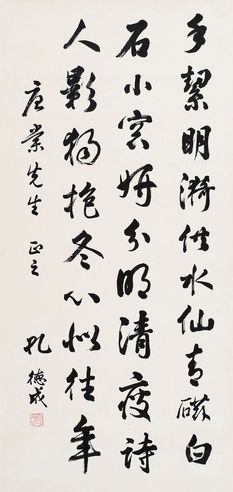 手絜明漪供水仙青磁白
石小窓妍分明清瘦詩
人影獨抱冬心似往年
先生 正之
孔德成